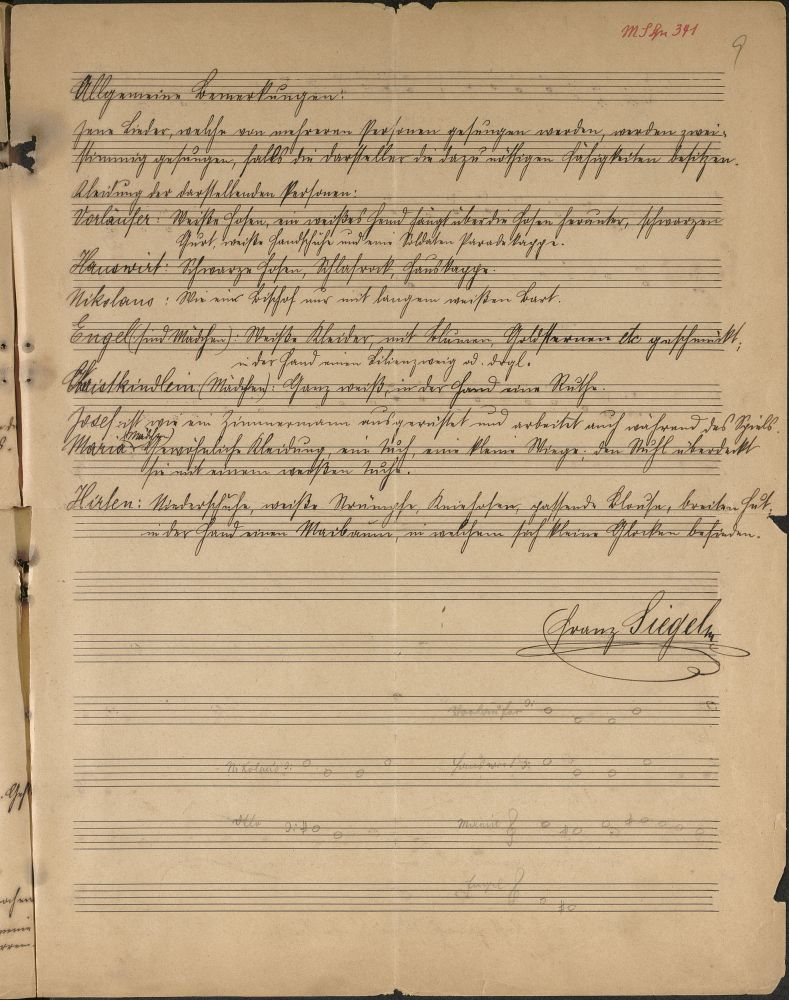 9
Allgemeine Bemerkungen:
Jene Lieder, welche von mehreren Personen gesungen werden, werden zwei-
stimmig gesungen, falls die Darsteller die dazu nöthigen Fähigkeiten besitzen.
Kleidung der darstellenden Personen:
Vorläufer: Weiße Hosen, ein weißes Hemd hängt über die Hosen herunter, schwarzen
Gurt, weiße Handschuhe und eine Soldaten Paradekappe.
Hauswirt: Schwarze Hosen, Schlafrock, Hauskappe.
Nikolaus: Wie ein Bischof nur mit langem weißen Bart.
Engel (sind Mädchen): Weiße Kleider, mit Blumen, Goldsternen etc geschmückt;
in der Hand einen Lilienzweig od. drgl.
Christkindlein (Mädchen): Ganz weiß, in der Hand eine Ruthe.
Josef ist wie ein Zimmermann ausgerüstet und arbeitet auch während des Spiels.
Maria (Mädch.): Gewöhnliche Kleidung, ein Tuch, eine kleine Wiege; den Stuhl überdeckt
sie mit einem weißen Tuche.
Hirten: Niederschuhe, weiße Strümpfe, Kniehosen, passende Blouse, breiten Hut,
in der Hand einen Maibaum, in welchem sich kleine Glocken befinden.
Franz Siegel
Vorläufer
Nikolaus Hauswirt
Maria
Engel